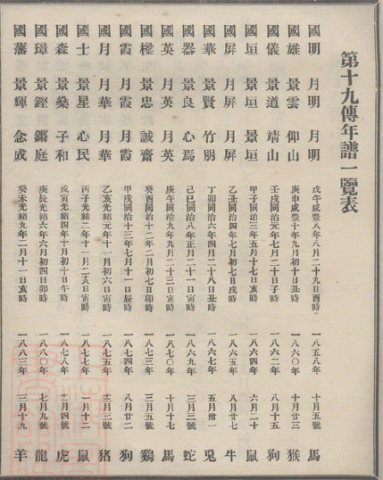 第十九傳年譜一覽表
國明 月明 月明 戊午咸豐八年八月二十九日酉時 一八五八年 十月五號 馬
國雄 景雲 仰山 庚申咸豐十年九月初十日丑時 一八六〇年 十月廿三 猴
國儀 景道 靖山 壬戌同治元年七月二十日子時 一八六二年 八月十五 狗
國垣 景垣 景垣 甲子同治三年五月十七日亥時 一八六四年 六月二十 鼠
國屏 月屏 月屏 乙丑同治四年七月初七日戌時 一八六五年 八月廿七 牛
國華 景賢 竹朋 丁卯同治六年四月二十八日丑時 一八六七年 五月卅一 兎
國器 景良 心焉 己巳同治八年正月二十一日寅時 一八六九年 三月三號 蛇
國英 月英 月英 庚午同治九年九月二十三日寅時 一八七〇年 十月十七 馬
國樑 景忠 誠齋 癸酉同治十二年二月初七日卯時 一八七三年 三月五號 鷄
國霞 月霞 月霞 甲戌同治十三年七月十一日辰時 一八七四年 八月廿二 狗
國月 月華 月華 乙亥光緒元年十一月初六日寅時 一八七五年 十二月三號 猪
國士 景星 心民 丙子光緒二年十一月二十八日寅時 一八七七年 一月十二 鼠
國森 景燊 子和 戊寅光緒四年十月初十日午時 一八七八年 十一月四號 虎
國璋 景鏗 鏘庭 庚辰光緒六年六月初四日卯時 一八八〇年 七月九號 龍
國藩 景輝 念成 癸未光緒九年二月十一日亥時 一八八三年 三月十九 羊